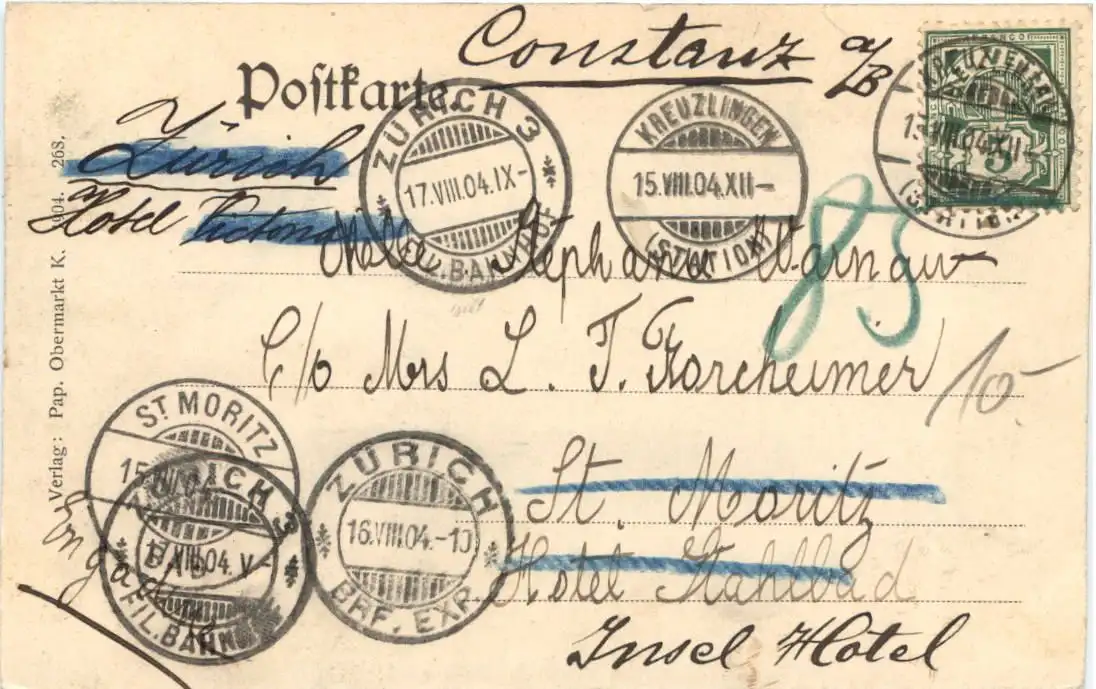 Constanz a/B
Postkarte.
Zürich
Hotel Victoria
ZÜRICH 3
17.VIII.04.IX-
FIL.BAHNHOF
KREUZLINGEN
15.VIII.04.XII-
(STATION)
KREUZLINGEN
15.VIII.04.XII-
(STATION)
5
85
Mlle Stephanie Warnaw
C/o Mrs L. T. Forcheimer
10-
St. Moritz
Hotel Stahlbad
Insel Hôtel
Engadin
ST MORITZ
BAD
ZÜRICH 3
17.VIII.04.V-
FIL.BAHNHOF
ZÜRICH
16.VIII.04.-10
BRF. EXP.
Verlag: Pap. Obermarkt K. 1904. 268.